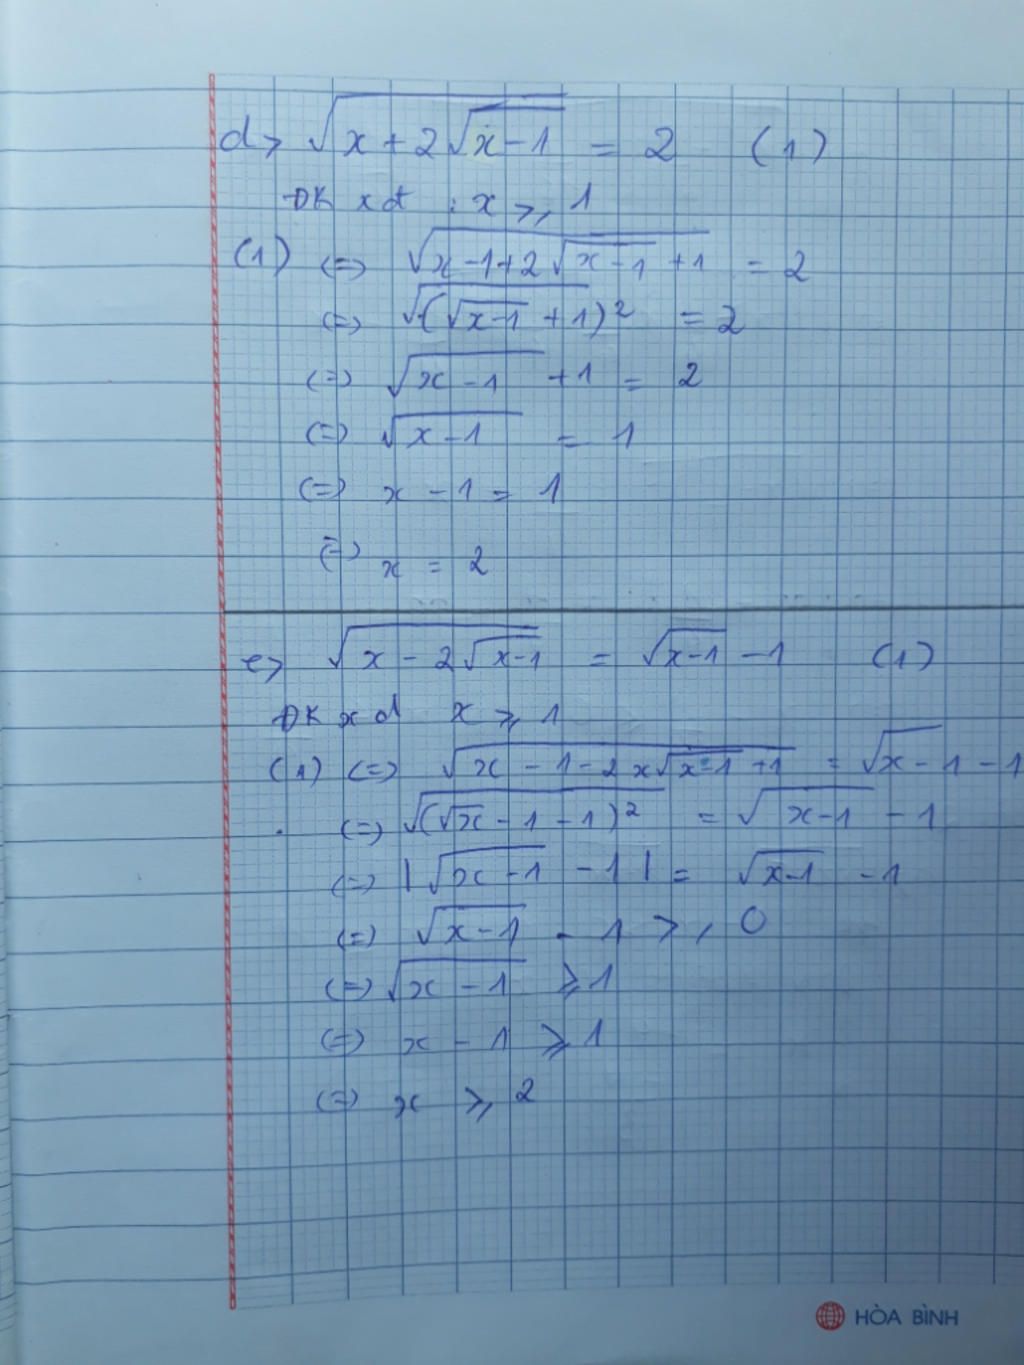 d> √(x+2√(x-1)) = 2 (1)
ĐK xđ : x ≥ 1
(1) (=) √(x-1+2√(x-1)+1) = 2
(=) √((√(x-1)+1)²) = 2
(=) √(x-1) +1 = 2
(=) √(x-1) = 1
(=) x - 1 = 1
(=) x = 2
e> √(x-2√(x-1)) = √(x-1) -1 (1)
ĐK xđ x ≥ 1
(1) (=) √(x-1-2x√(x-1)+1) = √(x-1) -1
(=) √((√x-1-1)²) = √(x-1) -1
(=) |√(x-1) -1| = √(x-1) -1
(=) √(x-1) - 1 ≥ 0
(=) √(x-1) ≥ 1
(=) x - 1 ≥ 1
(=) x ≥ 2
HÒA BÌNH